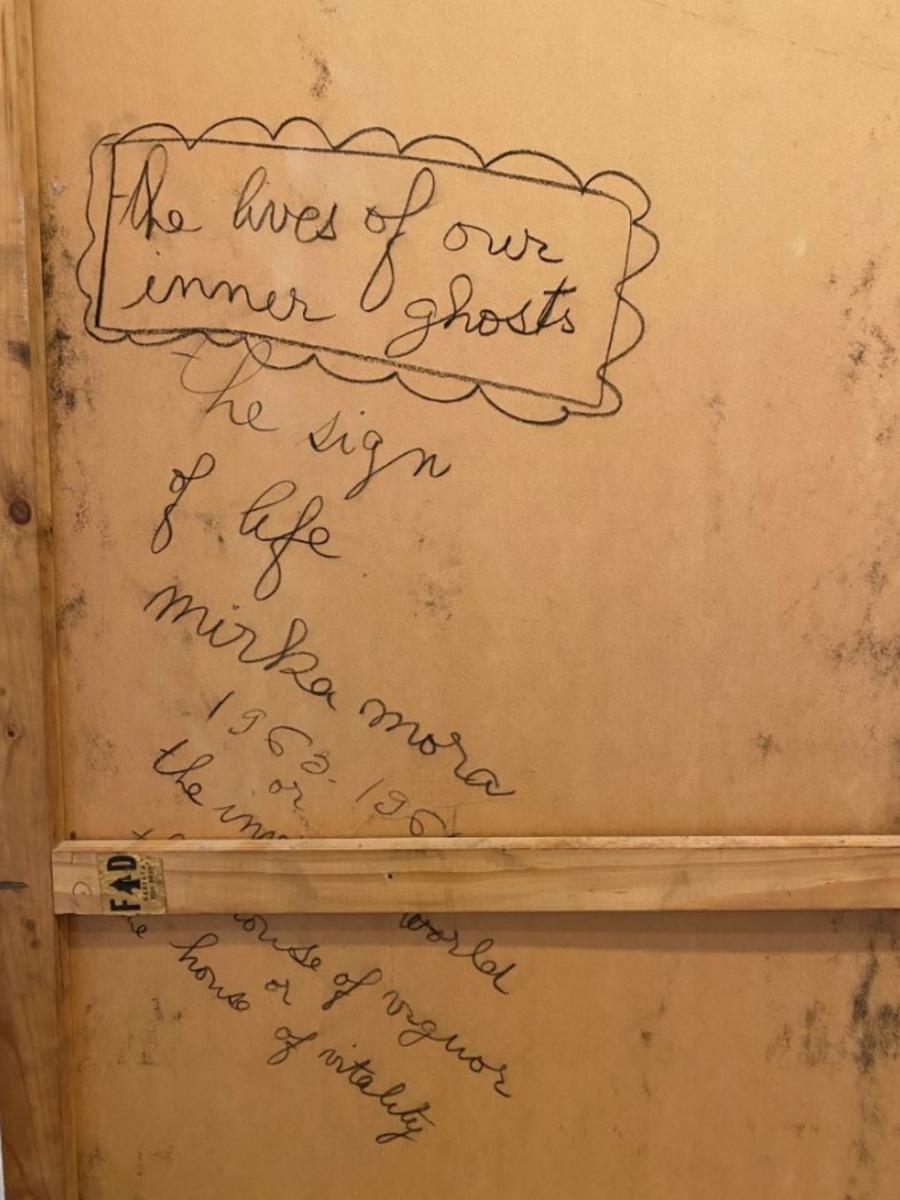 the lives of our
inner ghosts
the sign
of life
mirka mora
1963. 196
or
the inn
world
ouse of viguor
or
the house
of vitality
F D